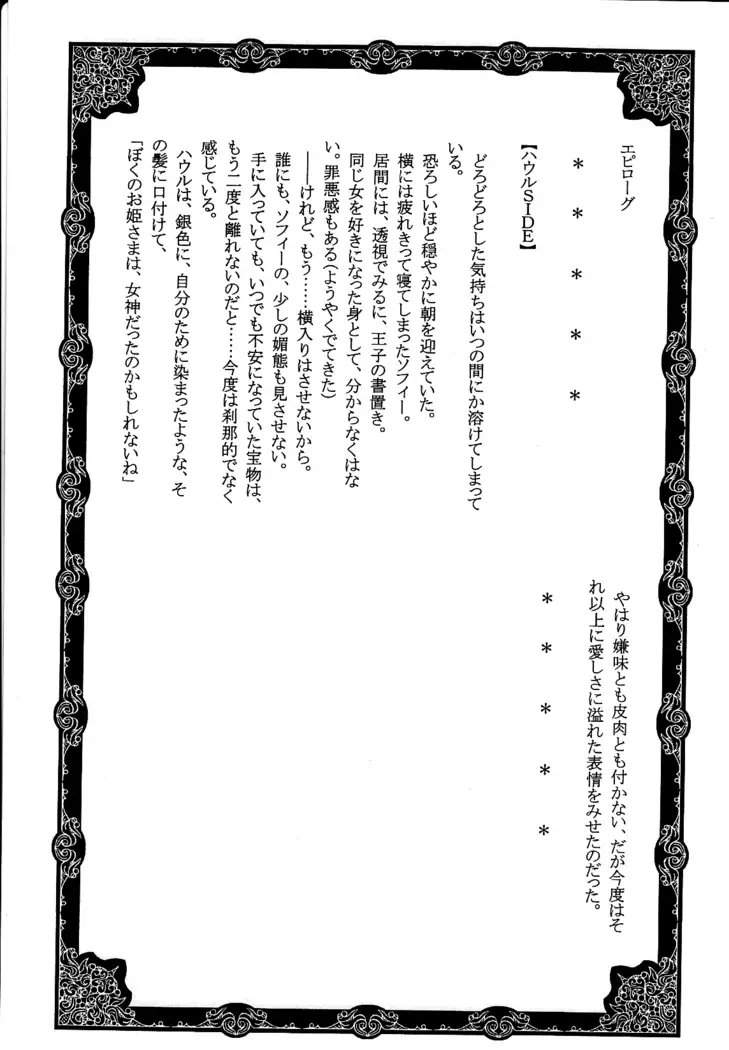 エピローグ
＊　＊　＊　＊　＊
【ハウルＳＩＤＥ】
どろどろとした気持ちはいつの間にか溶けてしまって
いる。
恐ろしいほど穏やかに朝を迎えていた。
横には疲れきって寝てしまったソフィー。
居間には、透視でみるに、王子の書置き。
同じ女を好きになった身として、分からなくはな
い。罪悪感もある（ようやくでてきた）
――けれど、もう……横入りはさせないから。
誰にも、ソフィーの、少しの媚態も見させない。
手に入っていても、いつでも不安になっていた宝物は、
もう二度と離れないのだと……今度は刹那的でなく
感じている。
ハウルは、銀色に、自分のために染まったような、そ
の髪に口付けて、
「ぼくのお姫さまは、女神だったのかもしれないね」
やはり嫌味とも皮肉とも付かない、だが今度はそ
れ以上に愛しさに溢れた表情をみせたのだった。
＊　＊　＊　＊　＊